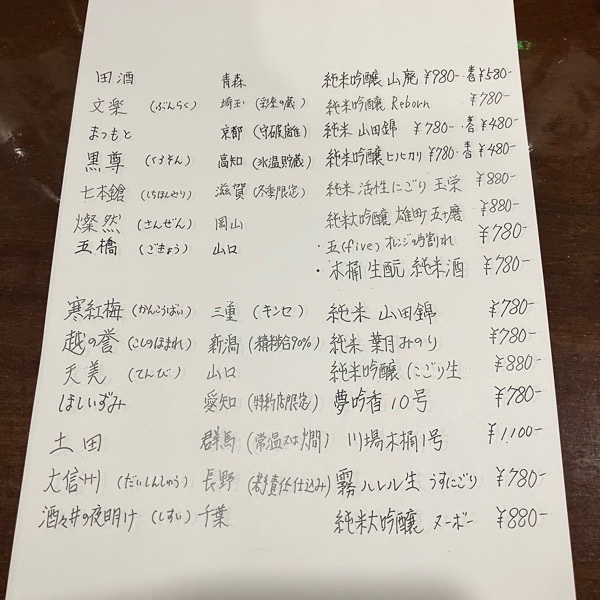 田酒 青森 純米吟醸 山廃 ¥980- 半合¥580-
文楽 (ぶんらく) 埼玉 (彩來の蔵) 純米吟醸 Reborn ¥780-
まつもと 京都 (守破離) 純米 山田錦 ¥780- 半合¥480-
黒尊 (くろそん) 高知 (氷温貯蔵) 純米吟醸 ヒノヒカリ ¥780- 半合¥480-
七本鎗 (しちほんやり) 滋賀 (冬季限定) 純米 活性にごり 玉栄 ¥880-
燦然 (さんぜん) 岡山 純米大吟醸 雄町 五十磨 ¥880-
五橋 (ごきょう) 山口 ・五(five) オレンジの 割れ ¥780-
・木桶 生酛 純米酒 ¥780-
寒紅梅 (かんこうばい) 三重 (キンセ) 純米 山田錦 ¥780-
越の誉 (こしのほまれ) 新潟 (精米歩合90%) 純米 葉月みのり ¥780-
天美 (てんび) 山口 純米吟醸 にごり生 ¥880-
ほしいずみ 愛知 (特約店限定) 夢吟香 10号 ¥780-
土田 群馬 (常温又は燗) 川場木桶1号 ¥1,100-
大信州 (だいしんしゅう) 長野 (責任仕込み) 霧ハレル生 うすにごり ¥780-
酒々井の夜明け (しすい) 千葉 純米大吟醸 ヌーボー ¥880-